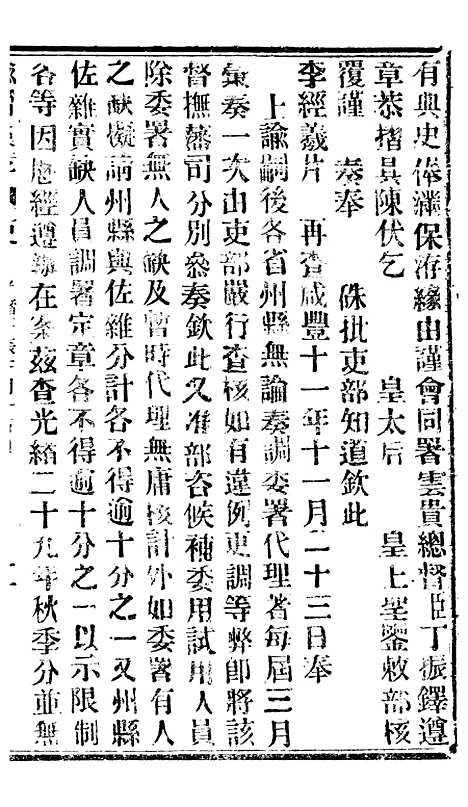 有典史俸滿保洊緣由謹會同署雲貴總督臣丁振鐸遵
章恭摺具陳伏乞　皇太后　皇上聖鑒敕部核
覆謹　奏奉　硃批吏部知道欽此
李經羲片　再查咸豐十一年十一月二十三日奉
上諭嗣後各省州縣無論奏調委署代理著每屆三月
彙奏一次由吏部嚴行查核如有違例更調等弊即將該
督撫藩司分別叅奏欽此又准部咨候補委用試用人員
除委署無人之缺及暫時代理無庸核計外如委署有人
之缺擬請州縣與佐雜分計各不得逾十分之一又州縣
佐雜實缺人員調署定章各不得逾十分之一以示限制
各等因歷經遵辦在案茲查光緒二十九年秋季分並無